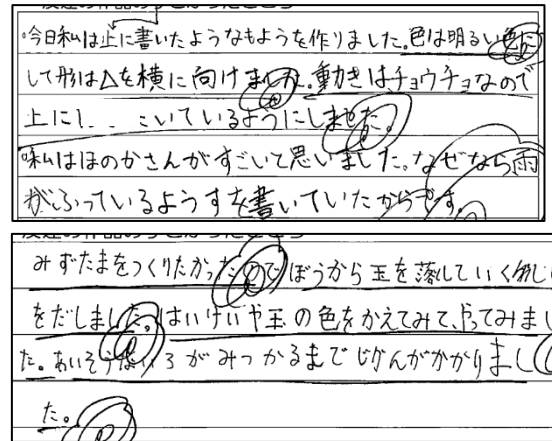 今日私は上に書いたようなもようを作りました。色は明るい色に
して形は△を横に向けました。動きはチョウチョなので
上に こいているようにしました。
私はほのかさんがすごいて思いました。なぜなら雨
がふっているようすを書いていたからです。
みずたまをつくりたかったのでぼうから玉を落していく感じ
をだしました。はいけいや玉の色をかえてみて、やってみまし
た。あいそうないろがみつかるまでじかんがかかりまし
た。